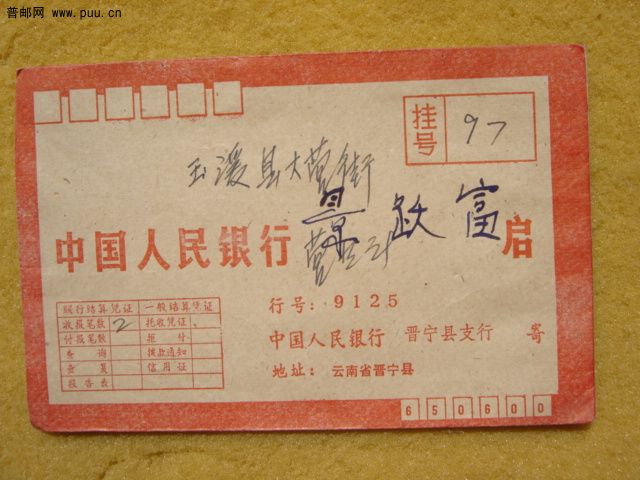 普邮网 www.puu.cn
挂号 97
玉溪县大营街
中国人民银行 营 跃富 启
行号:9125
中国人民银行 晋宁县支行 寄
地址:云南省晋宁县
联行结算凭证 一般结算凭证
收报笔数 2 托收凭证
付报笔数 拒付
查询 拨款通知
查复 信用证
报告表
650600